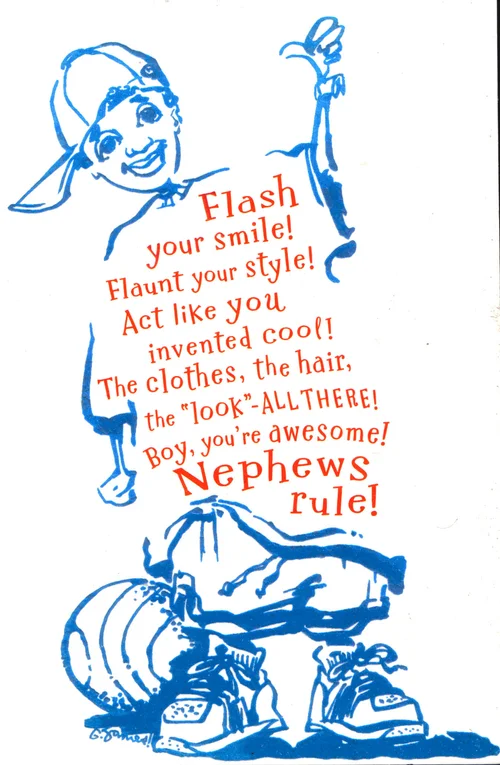 Flash
your smile!
Flaunt your style!
Act like you
invented cool!
The clothes, the hair,
the "look"-ALL THERE!
Boy, you're awesome!
Nephews
rule!
G. James!!